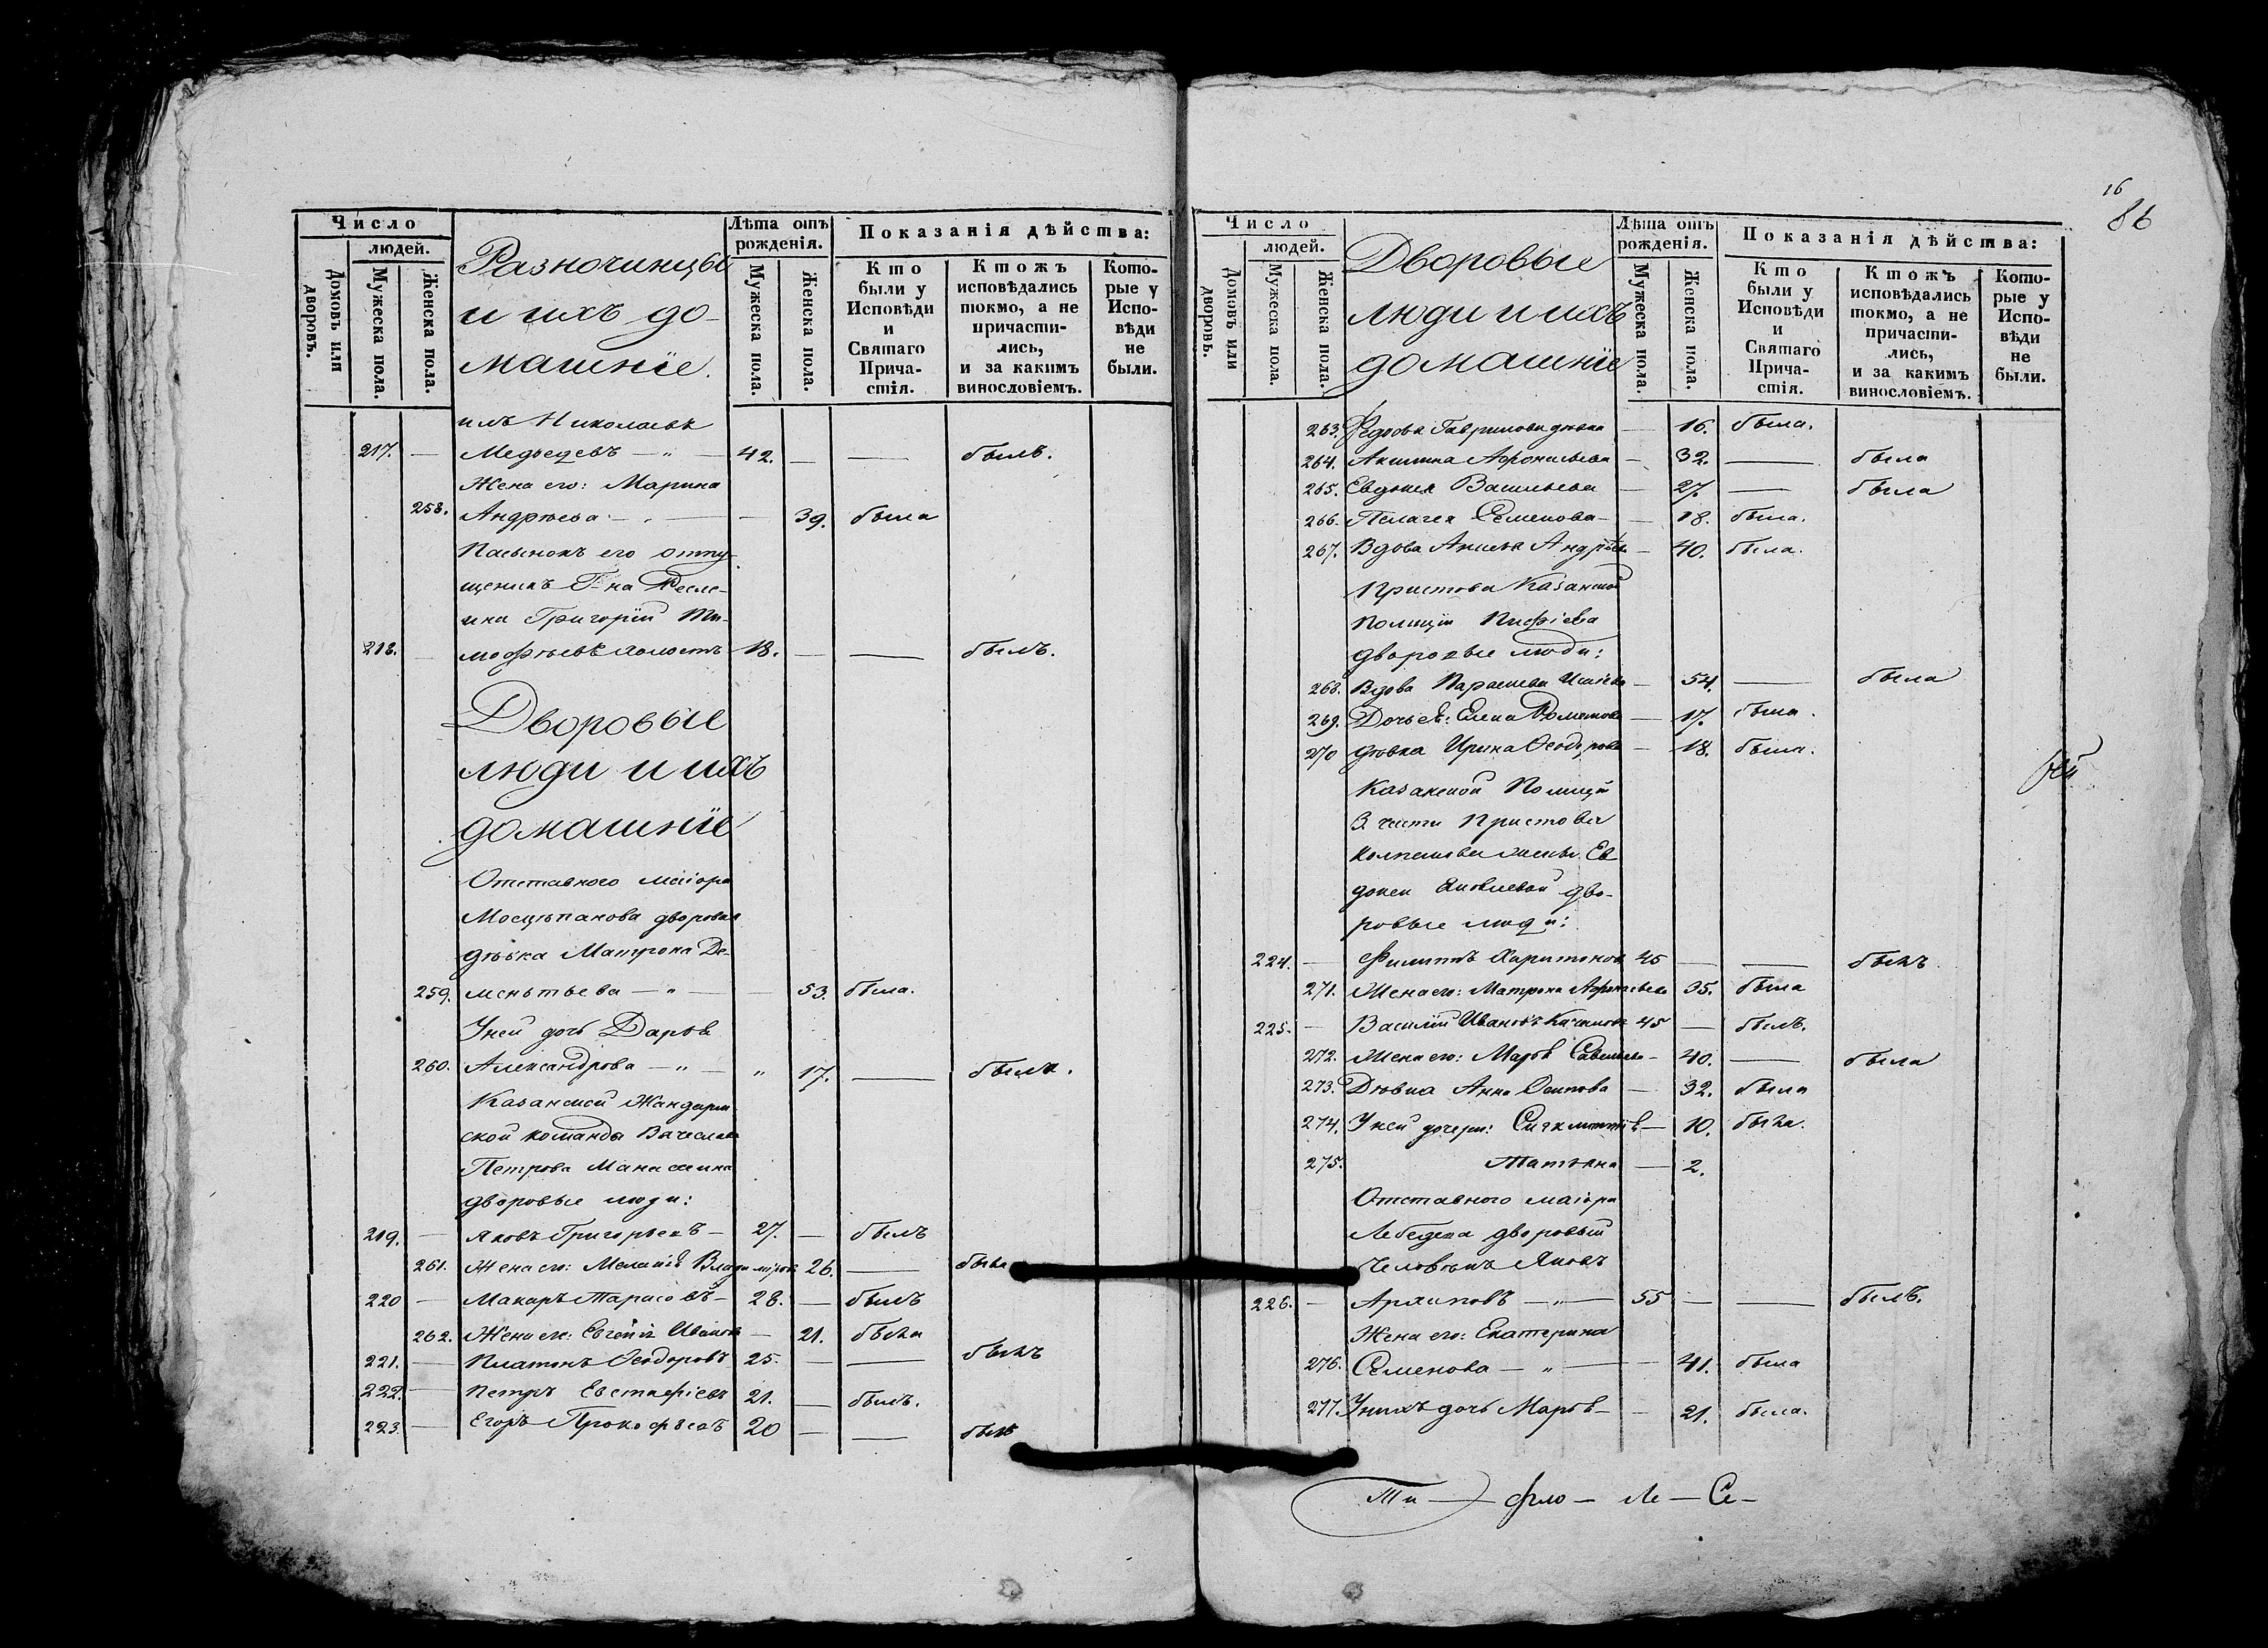 Число
людей.
Домовъ или дворовъ.
Мужеска пола.
Женска пола.
Разночинцы
и ихъ до-
машніе.
Лѣта отъ рожденія.
Мужеска пола.
Женска пола.
Показанія дѣйства:
Кто были у Исповѣди и Святаго Прича-стія.
Ктожъ исповѣдались токмо, а не причасти-лись, и за какимъ винословіемъ.
Кото-рые у Испо-вѣди не были.
илъ Николаевъ
217. — Медведевъ — „ — 42. — — былъ.
Жена его: Марина
258. Андрѣева — — 39. была
Пасынокъ его отпу-
щеникъ Г-на
Григорій Ти-
218. — мофѣевъ холостъ 18. — — былъ.
Дворовые
люди и ихъ
домашніе
Отставного маіора
дворовая
дѣвка Матрона Де-
259. ментьева — „ — — 53. была.
У ней дочь Дарья
260. Александрова — „ — „ 17. — была.
Казанской Жандарм-
ской команды Вячеслава
Петрова
дворовые люди:
219. — Яковъ Григорьевъ — 27. — былъ
261. Жена его: Меланія Владимірова 26. — была
220 — Макаръ Тарасовъ — 28. — былъ
262. Жена его: Евгенія Иванова — 21. была
221. — Платонъ Ѳеодоровъ 25. — — былъ
222. — Петръ Евстафіевъ 21. — былъ.
223. — Егоръ Прокофьевъ 20 — — былъ
16
86
Число
людей.
Домовъ или дворовъ.
Мужеска пола.
Женска пола.
Дворовые
люди и ихъ
домашніе
Лѣта отъ рожденія.
Мужеска пола.
Женска пола.
Показанія дѣйства:
Кто были у Исповѣди и Святаго Прича-стія.
Ктожъ исповѣдались токмо, а не причасти-лись, и за какимъ винословіемъ.
Кото-рые у Испо-вѣди не были.
263. Гаврилова дѣвка — 16. была.
264. Акилина Афонасьева — 32. — была
265. Евдокія Васильева — 27. — была
266. Пелагея Семенова — — 18. была.
267. Вдова Андрѣева — 40. была.
Пристова Казанской
Полиціи
дворовые люди:
268. Вдова Парасковья — 54. — была
269. Дочь еѣ: Елена Романова — 17. была.
270 дѣвка Ирина Ѳеодорова — 18. была.
Казанской Полиціи
3. части Пристова
жены Ев-
докеи Яковлевой дво-
ровые люди:
224. — Филиппъ Харитоновъ 45 — — былъ.
271. Жена его: Матрона Афонасьева 35. была
225. — Василій Ивановъ 45 — былъ.
272. Жена его: Марья Савельева — 40. — была
273. Дѣвка Анна Осипова — 32. была
274. У ней дочери: — 10. была.
275. Татьяна — 2.
Отставного маіора
Лебедева дворовый
человѣкъ Яковъ
226. — Архиповъ — „ — 55 — — былъ.
Жена его: Екатерина
276. Семенова — „ — — 41. была
277. У нихъ дочь Марья — — 21. была.
Ти — фло — Ле — Се —